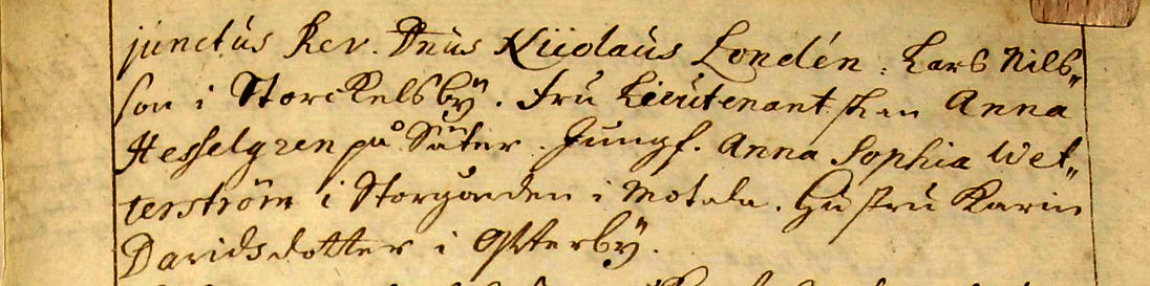 junctus Rev. Dnus Nicolaus Londén. Lars Nils„
son i Storckelsbÿ. Fru Lieutenantskan Anna
Hesselgren på Säter. Jungf. Anna Sophia Wet„
terström i Storgården i Motala. Hustru Karin
Davidsdotter i Østerbÿ.